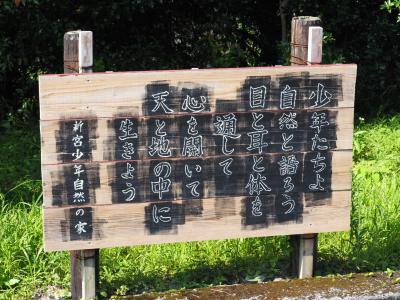 少年たちよ
自然と語ろう
目と耳と体を
通して
心を開いて
天と地の中に
生きよう
新宮少年自然の家